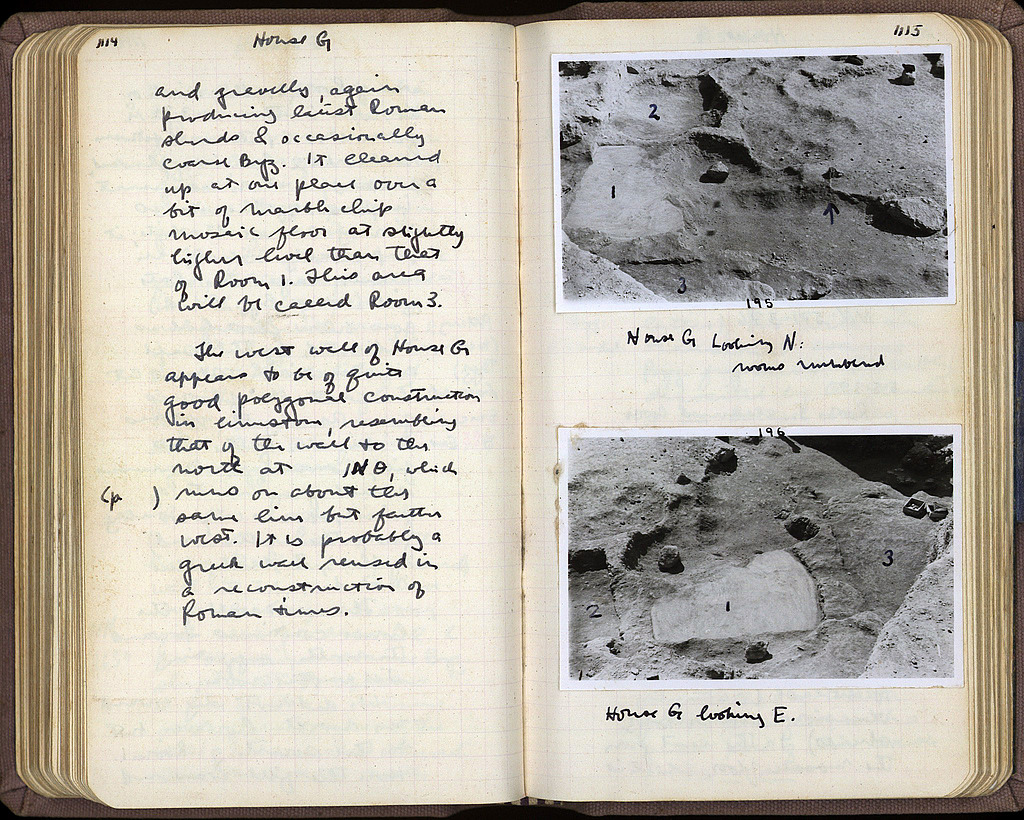 1114
House G
and gravelly, again
producing latest Roman
sherds & occasionally
coarse Byz. It cleaned
up at one place over a
bit of marble chip
mosaic floor at slightly
higher level than that
of Room 1. This area
will be called Room 3.
The west wall of House G
appears to be of quite
good polygonal construction
in limestone, resembling
that of the wall to the
north at ΙΝΘ, which
(p ) runs on about this
same line but farther
west. It is probably a
greek wall reused in
a reconstruction of
Roman times.
1115
2
1
↑
3
195
House G Looking N:
rooms numbered
196
3
1
2
House G looking E.